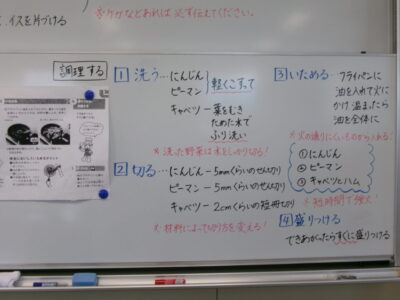 ※ケガなどあれば必ず伝えてください。
イスを片づける
調理する
1 洗う…にんじん
ピーマン
軽くこすって
キャベツー葉をむき
ためた水で
ふり洗い
※洗った野菜は水をしっかり切る!
2 切る…にんじんー5mmくらいのせん切り
ピーマンー5mmくらいのせん切り
キャベツー2cmくらいの短冊切り
※材料によって切り方を変える!
3 いためる…フライパンに
油を入れて火に
かけ温まったら
油を全体に
※火の通りにくいものから入れる!
①にんじん
②ピーマン
③キャベツとハム
※短時間で強火!
4 盛りつける
できあがったらすぐに盛りつける